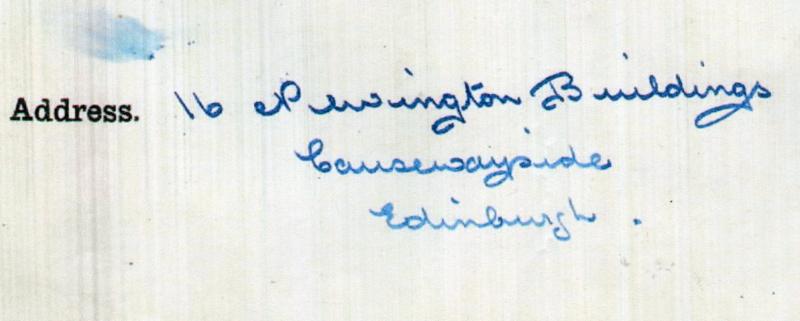 Address. 16 Newington Buildings
Causewayside
Edinburgh.